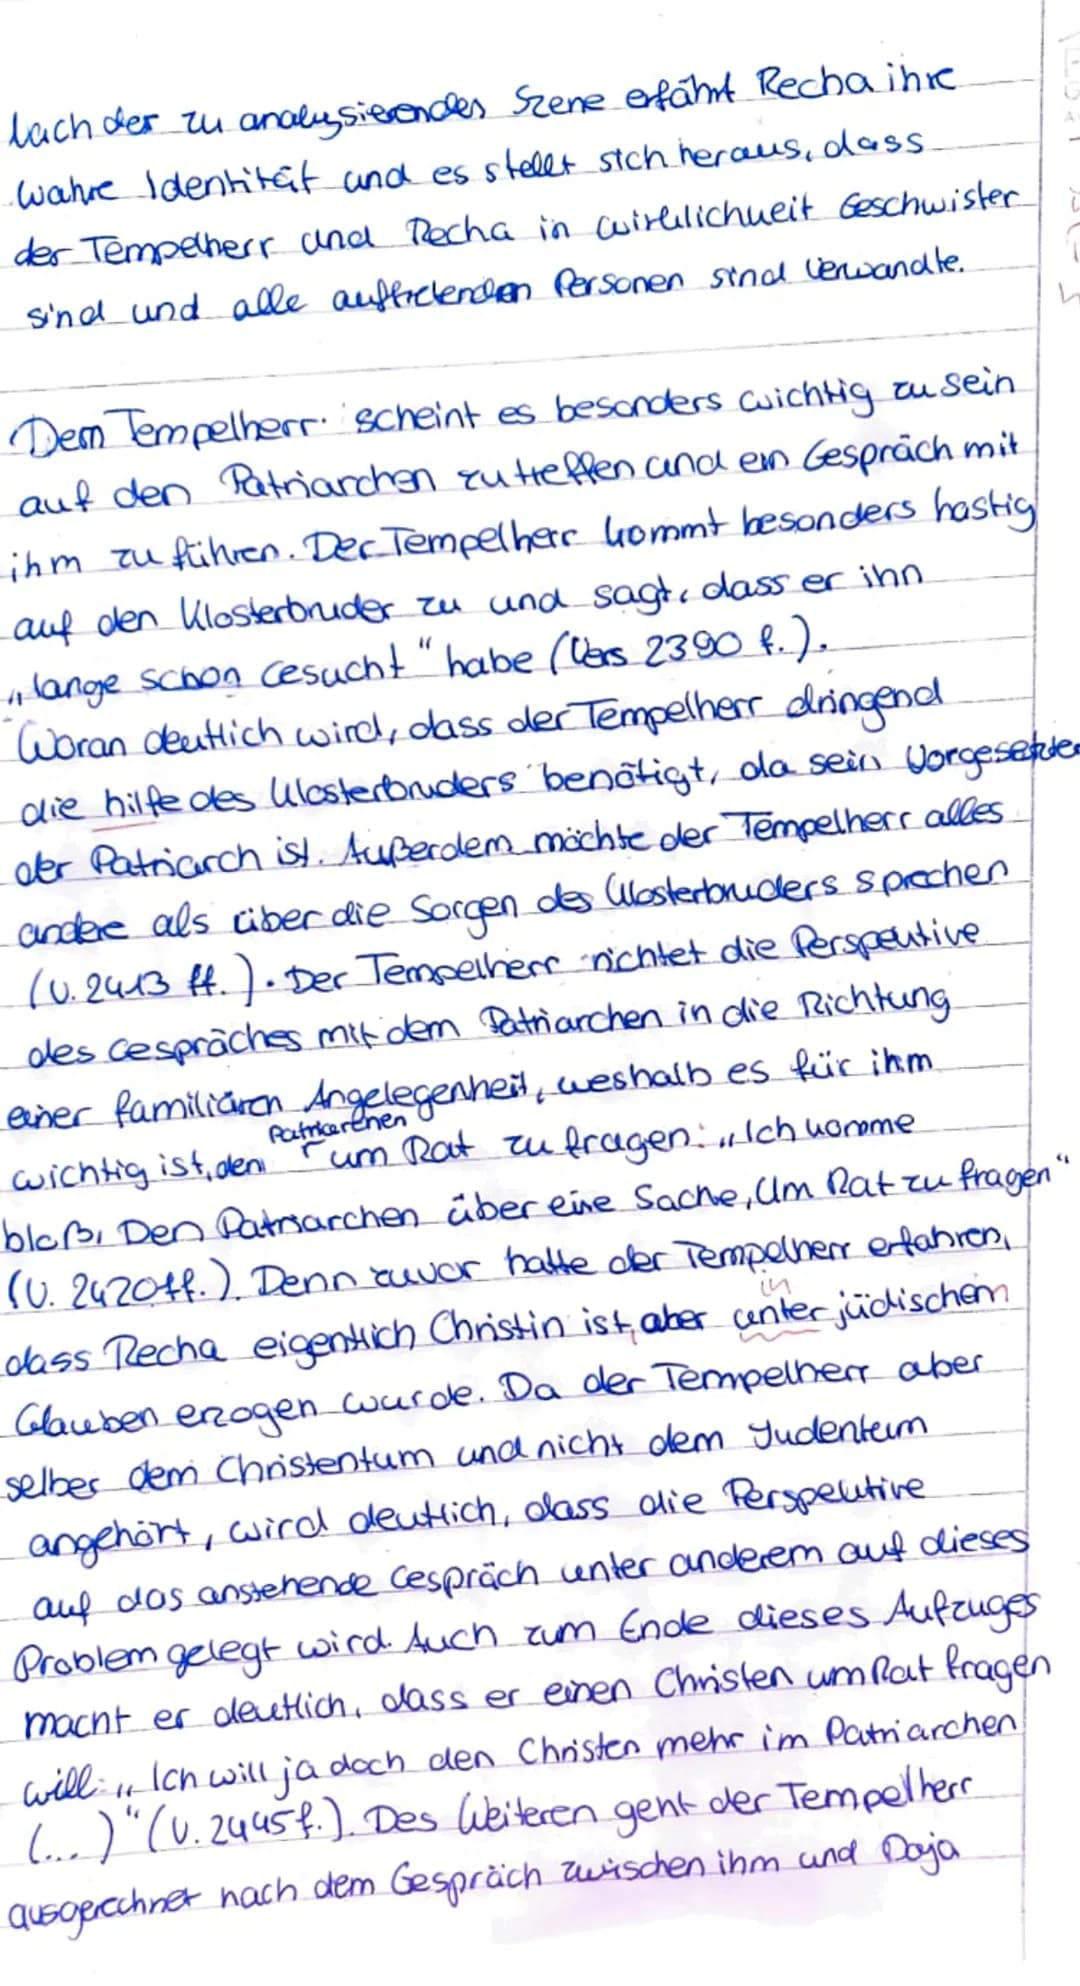 lach der zu analysierenden Szene erfährt Recha ihre
wahre Identität und es stellt sich heraus, dass
der Tempelherr und Recha in wirklichkeit Geschwister
sind und alle auftretenden Personen sind Verwandte.
Dem Tempelherr scheint es besonders wichtig zu sein
auf den Patriarchen zu treffen und ein Gespräch mit
ihm zu führen. Der Tempelherr kommt besonders hastig
auf den Klosterbruder zu und sagt, dass er ihn
„lange schon Gesucht" habe (Vers 2390 f.).
Woran deutlich wird, dass der Tempelherr dringend
die hilfe des Klosterbruders benötigt, da sein Vorgesetzter
der Patriarch ist. Außerdem möchte der Tempelherr alles
andere als über die Sorgen des Klosterbruders sprechen
(V. 2413 ff.). Der Tempelherr richtet die Perspektive
des Gespräches mit dem Patriarchen in die Richtung
einer familiären Angelegenheit, weshalb es für ihm
wichtig ist, den Patriarchen um Rat zu fragen: „Ich komme
bloß, Den Patriarchen über eine Sache, Um Rat zu fragen"
(V. 2420ff.). Denn zuvor hatte der Tempelherr erfahren,
dass Recha eigentlich Christin ist, aber unter in jüdischem
Glauben erzogen wurde. Da der Tempelherr aber
selber dem Christentum und nicht dem Judentum
angehört, wird deutlich, dass die Perspektive
auf das anstehende Gespräch unter anderem auf dieses
Problem gelegt wird. Auch zum Ende dieses Aufzuges
macht er deutlich, dass er einen Christen um Rat fragen
will: „Ich will ja doch den Christen mehr im Patriarchen
(...)" (V. 2445f.). Des Weiteren geht der Tempelherr
ausgerechnet nach dem Gespräch zwischen ihm und Daja